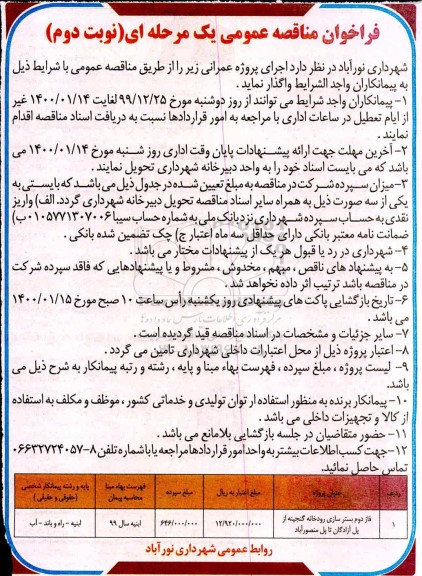 فراخوان مناقصه عمومی یک مرحله ای(نوبت دوم)
شهرداری نورآباد در نظر دارد اجرای پروژه عمرانی زیر را از طریق مناقصه عمومی با شرایط ذیل
به پیمانکاران واجد الشرایط واگذار نماید .
۱- پیمانکاران واجد شرایط می توانند از روز دوشنبه مورخ ۹۹/۱۲/۲۵ لغایت ۱۴۰۰/۰۱/۱۴ غیر
از ایام تعطیل در ساعات اداری با مراجعه به امور قراردادها نسبت به دریافت اسناد مناقصه اقدام
نمایند .
۲- آخرین مهلت جهت ارائه پیشنهادات پایان وقت اداری روز شنبه مورخ ۱۴۰۰/۰۱/۱۴ می
باشد که می بایست اسناد خود را به واحد دبیرخانه شهرداری تحویل نمایند .
۳- میزان سپرده شرکت در مناقصه به مبلغ تعیین شده در جدول ذیل می باشد که بایستی به
یکی از سه صورت ذیل به همراه سایر اسناد مناقصه تحویل دبیرخانه شهرداری گردد. الف) واریز
نقدی به حساب سپرده شهرداری نزد بانک ملی به شماره حساب سیبا ۰۱۰۵۷۷۱۳۰۷۰۰۶ ب)
ضمانت نامه معتبر بانکی دارای حداقل سه ماه اعتبار ج) چک تضمین شده بانکی .
۴- شهرداری در رد یا قبول هر یک از پیشنهادات مختار می باشد .
۵- به پیشنهاد های ناقص ، مبهم ، مخدوش ، مشروط و یا پیشنهادهایی که فاقد سپرده شرکت
در مناقصه باشد ترتیب اثر داده نخواهد شد .
۶- تاریخ بازگشایی پاکت های پیشنهادی روز یکشنبه رأس ساعت ۱۰ صبح مورخ ۱۴۰۰/۰۱/۱۵
می باشد .
۷- سایر جزئیات و مشخصات در اسناد مناقصه قید گردیده است .
۸- اعتبار پروژه ذیل از محل اعتبارات داخلی شهرداری تامین می گردد .
۹- لیست پروژه ، مبلغ سپرده ، فهرست بهاء مبنا و پایه ، رشته و رتبه پیمانکار به شرح ذیل می
باشد.
۱۰- پیمانکار برنده به منظور استفاده از توان تولیدی و خدماتی کشور ، موظف و مکلف به استفاده
از کالا و تجهیزات داخلی می باشد .
۱۱- حضور متقاضیان در جلسه بازگشایی بلامانع می باشد .
۱۲- جهت کسب اطلاعات بیشتر به واحد امور قراردادها مراجعه یا با شماره تلفن ۸-۰۶۶۳۲۷۲۴۰۵۷
تماس حاصل نمائید.
ردیف عنوان پروژه مبلغ اعتبار به ریال مبلغ سپرده فهرست بهاء مبنا محاسبه پیمان پایه و رشته پیمانکار شخصی (حقوقی و حقیقی)
۱ فاز دوم بستر سازی رودخانه گنجینه از پل آزادگان تا پل منصورآباد ۱۲/۹۲۰/۰۰۰/۰۰۰ ۶۴۶/۰۰۰/۰۰۰ ابنیه سال ۹۹ ابنیه - راه و باند - آب
روابط عمومی شهرداری نورآباد